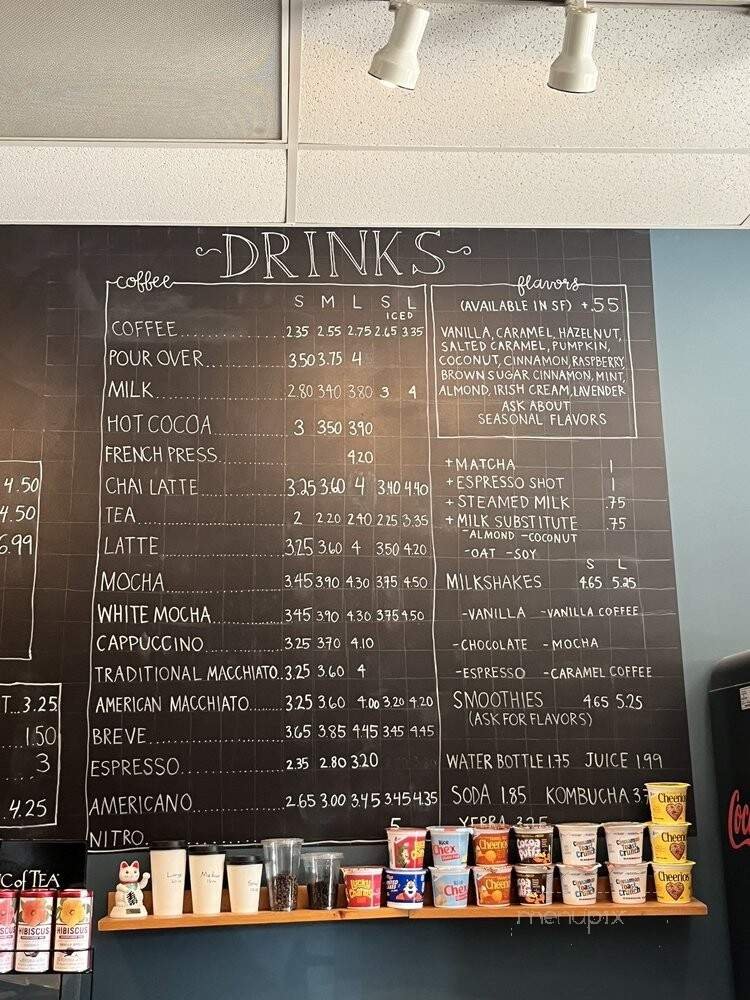 ~DRINKS~
coffee
S M L S L
ICED
COFFEE 2.35 2.55 2.75 2.65 3.35
POUR OVER 3.50 3.75 4
MILK 2.80 3.40 3.80 3 4
HOT COCOA 3 3.50 3.90
FRENCH PRESS 4.20
CHAI LATTE 3.25 3.60 4 3.40 4.40
TEA 2 2.20 2.40 2.25 3.35
LATTE 3.25 3.60 4 3.50 4.20
MOCHA 3.45 3.90 4.30 3.75 4.50
WHITE MOCHA 3.45 3.90 4.30 3.75 4.50
CAPPUCCINO 3.25 3.70 4.10
TRADITIONAL MACCHIATO 3.25 3.60 4
AMERICAN MACCHIATO 3.25 3.60 4.00 3.20 4.20
BREVE 3.65 3.85 4.45 3.45 4.45
ESPRESSO 2.35 2.80 3.20
AMERICANO 2.65 3.00 3.45 3.45 4.35
NITRO 5
flavors
(AVAILABLE IN SF) +.55
VANILLA, CARAMEL, HAZELNUT,
SALTED CARAMEL, PUMPKIN,
COCONUT, CINNAMON, RASPBERRY
BROWN SUGAR CINNAMON, MINT,
ALMOND, IRISH CREAM, LAVENDER
ASK ABOUT
SEASONAL FLAVORS
+MATCHA 1
+ESPRESSO SHOT 1
+STEAMED MILK .75
+MILK SUBSTITUTE .75
-ALMOND -COCONUT
-OAT -SOY
S L
MILKSHAKES 4.65 5.25
-VANILLA -VANILLA COFFEE
-CHOCOLATE -MOCHA
-ESPRESSO -CARAMEL COFFEE
SMOOTHIES 4.65 5.25
(ASK FOR FLAVORS)
WATER BOTTLE 1.75 JUICE 1.99
SODA 1.85 KOMBUCHA
YERBA 3.25
4.50
4.50
6.99
3.25
1.50
3
4.25
OF TEA
HIBISCUS
HIBISCUS
Large
Medium
Cheerios
Cheerios
Cheerios
Rice Chex
Cheerios
Cocoa Puffs
Cinnamon Toast Crunch
Cinnamon Toast Crunch
Lucky Charms
Rice Chex
Cheerios
Cinnamon Toast Crunch
Cinnamon Toast Crunch
menupix